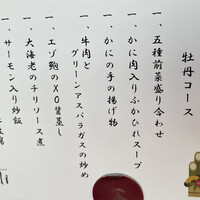 牡丹コース
一、五種前菜盛り合わせ
一、かに肉入りふかひれスープ
一、かにの手の揚げ物
一、牛肉と
グリーンアスパラガスの炒め
一、エゾ鮑のXO醤蒸し
一、大海老のチリソース煮
一、サーモン入り炒飯